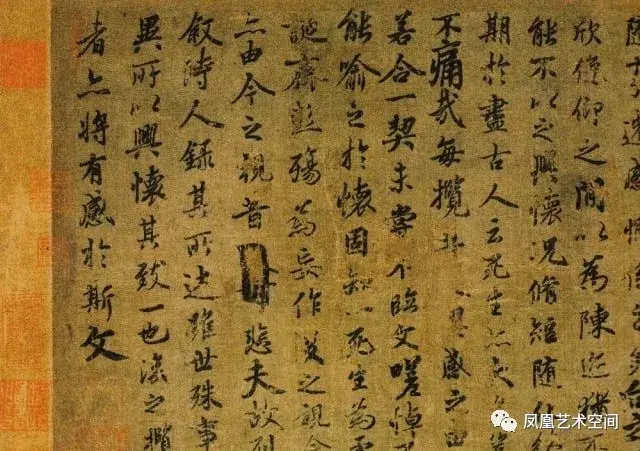 事遷感
欣俛仰之閒以為陳迹猶不
能不以之興懷況脩短隨化終
期於盡古人云死生亦大矣
不痛哉每攬 感之由
若合一契未嘗不臨文嗟悼
能喻之於懷固知一死生為
誕齊彭殤為妄作後之視今
亦由今之視昔 悲夫故列
敘時人錄其所述雖世殊事
異所以興懷其致一也後之攬
者亦將有感於斯文
凤凰艺术空间